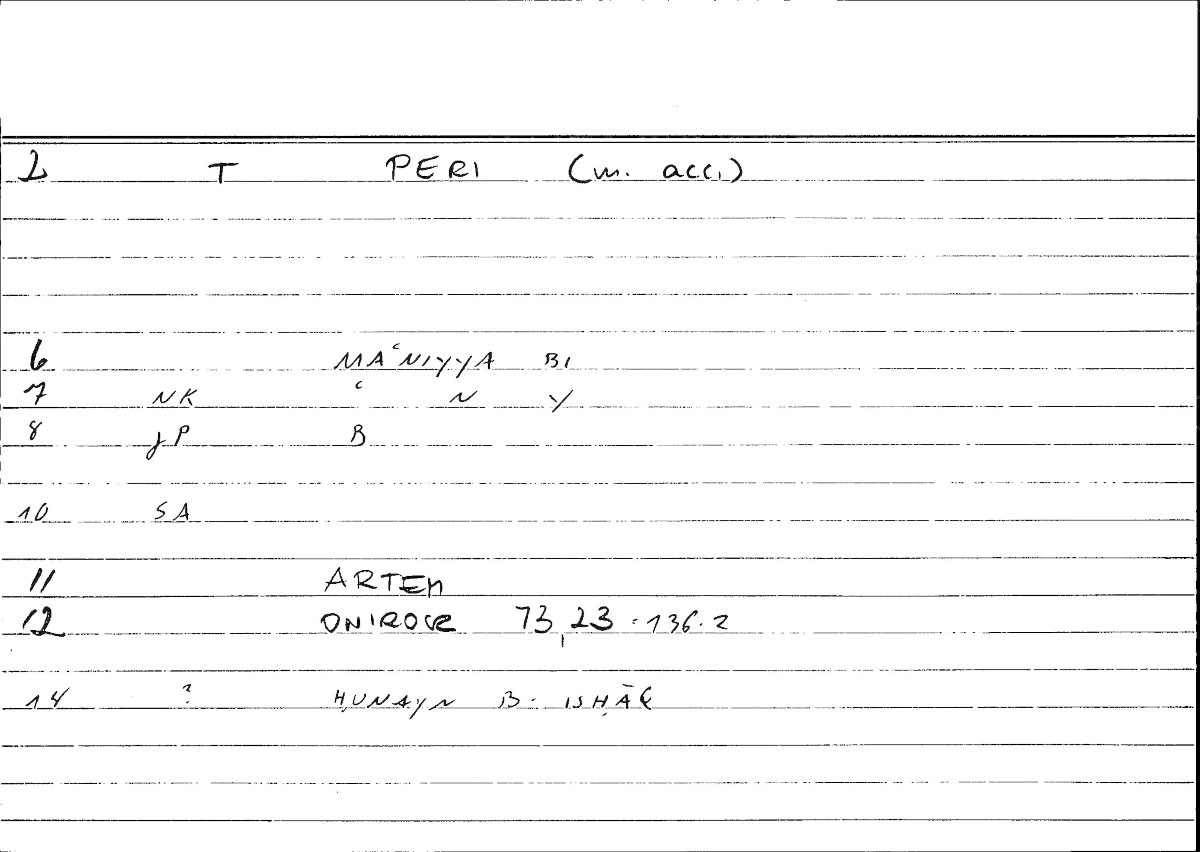 2 T PERI (m. acc.)
6 MAʿNIYYA BI
7 NK ʿ N Y
8 JP B
10 SA
11 ARTEM
12 ONIROCR 73,23 - 136.2
14 ? ḤUNAYN B. ISḤĀQ